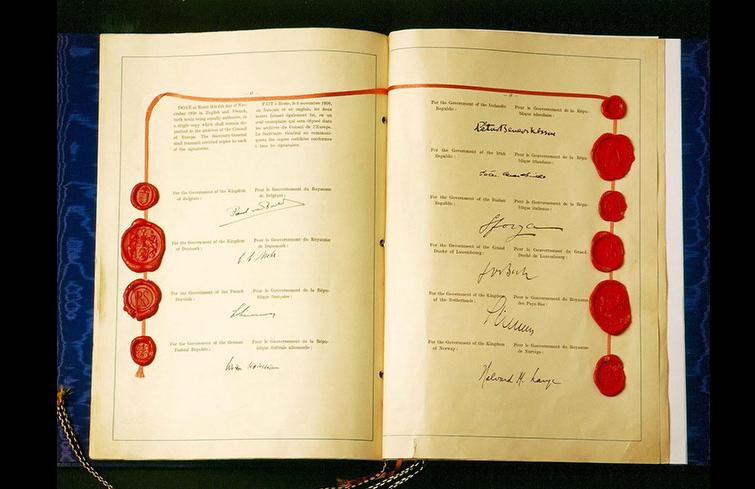 — 17 —
DONE at Rome this 4th day of No-
vember 1950 in English and French,
both texts being equally authentic, in
a single copy which shall remain de-
posited in the archives of the Council
of Europe. The Secretary-General
shall transmit certified copies to each
of the signatories.
FAIT à Rome, le 4 novembre 1950,
en français et en anglais, les deux
textes faisant également foi, en un
seul exemplaire qui sera déposé dans
les archives du Conseil de l'Europe.
Le Secrétaire Général en communi-
quera des copies certifiées conformes
à tous les signataires.
For the Government of the Kingdom
of Belgium :
Pour le Gouvernement du Royaume
de Belgique :
For the Government of the Kingdom
of Denmark :
Pour le Gouvernement du Royaume
de Danemark :
For the Government of the French
Republic :
Pour le Gouvernement de la Répu-
blique française :
For the Government of the German
Federal Republic :
Pour le Gouvernement de la Répu-
blique fédérale allemande :
For the Government of the Icelandic
Republic :
Pour le Gouvernement de la Répu-
blique islandaise :
For the Government of the Irish
Republic :
Pour le Gouvernement de la Répu-
blique irlandaise :
For the Government of the Italian
Republic :
Pour le Gouvernement de la Répu-
blique italienne :
Sforza
For the Government of the Grand
Duchy of Luxembourg :
Pour le Gouvernement du Grand-
Duché de Luxembourg :
Jos Bech
For the Government of the Kingdom
of the Netherlands :
Pour le Gouvernement du Royaume
des Pays-Bas :
For the Government of the Kingdom
of Norway :
Pour le Gouvernement du Royaume
de Norvège :
Halvard M. Lange